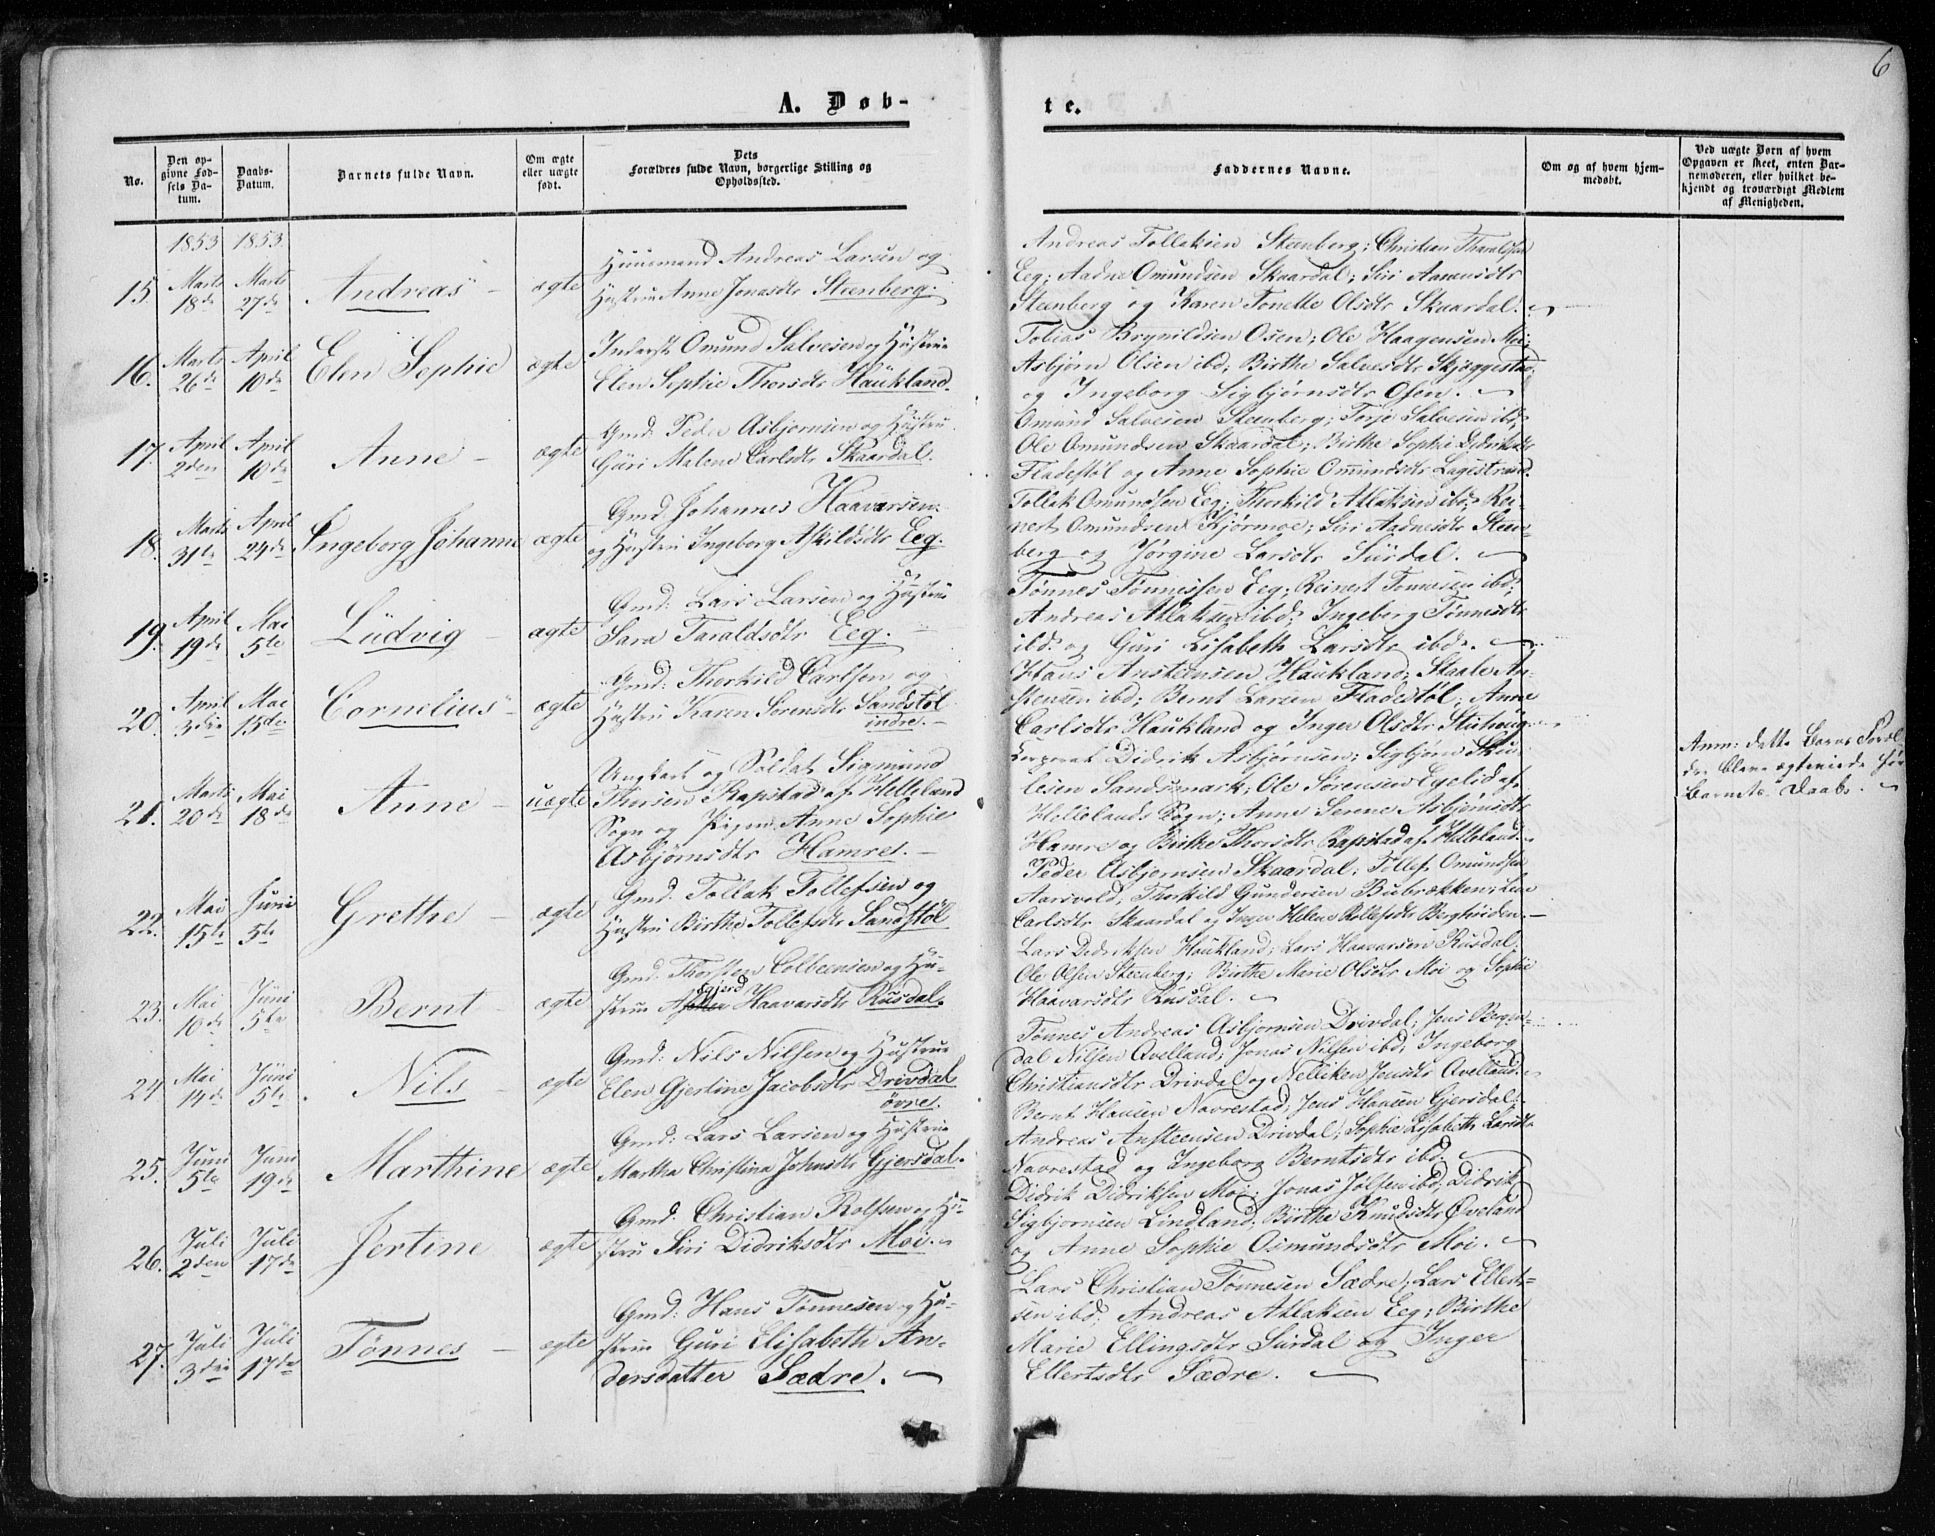 6
A. Døb-
te.
No.
Den op-
givne Fød-
sels Da-
tum.
Daabs-
Datum.
Barnets fulde Navn.
Om ægte
eller uægte
født.
Dets
Forældres fulde Navn, borgerlige Stilling og
Opholdssted.
Faddernes Navne.
Om og af hvem hjem-
medøbt.
Ved uægte Børn af hvem
Opgaven er skeet, enten Bar-
nemoderen, eller hvilket be-
kjendt og troværdigt Medlem
af Menigheden.
1853 1853
15 Marts 18de Marts 27de Andreas - ægte
Huusmand Andreas Larsen og
Hustru Anne Jonasdtr Steenberg.
Andreas Tollaksen Steenberg; Christian Tharaldsen
Eeg; Aadne Omundsen Skaardal; Siri Aanensdtr
Steenberg og Karen Tonette Olsdtr Skaardal.
16. Marts 26de April 10de Elen Sophie ægte
Inderst Omund Salvesen og Hustrue
Elen Sophie Thorsdtr Haukland.
Tobias Brynildsen Osen; Ole Haagensen Moi;
Asbjørn Olsen ibd; Birthe Salvesdtr Skjøggestad
og Ingeborg Sigbjørnsdtr Osen.
17. April 2den April 10de Anne - ægte
Gmd: Peder Asbjørnsen og Hustru
Guri Malene Carlsdtr Skaardal.
Omund Salvesen Steenberg; Torje Salvesen ibd;
Ole Omundsen Skaardal; Birthe Sophie Didriksdtr
Fladestøl og Anne Sophie Omundsdtr Lagestrand.
18. Marts 31te April 24de Ingeborg Johanne ægte
Gmd Johannes Haavarsen
og Hustru Ingeborg Askildsdtr Eeg.
Tollak Omundsen Eeg; Thorkild Atlaksen ibd; Rei-
nert Omundsen Kjørmoe; Siri Aadnesdtr Steen-
berg og Jørgine Larsdtr Surdal.
19. April 19de Mai 5te Ludvig - ægte
Gmd: Lars Larsen og Hustrue
Sara Taraldsdtr Eeg.
Tønnes Tønnessen Eeg; Reinert Tønnesen ibd;
Andreas Atlaksen ibd; Ingeborg Tønnesdtr
ibd. og Guri Lisabeth Larsdtr ibd.
20. April 3die Mai 15de Cornelius - ægte
Gmd: Thorkild Carlsen og
Hustru Karen Sørensdtr Sandstøl
indre.
Hans Anstensen Haukland; Staale An-
stensen ibd; Bernt Larsen Fladestøl; Anne
Carlsdtr Haukland og Inger Olsdtr
21. Marts 20de Mai 18de Anne - uægte
Ungkarl og Soldat Sigmund
Thorsen Rapstad af Helleland
Sogn og Pigen Anne Sophie
Asbjørnsdtr Hamre.
Corporal Didrik Asbjørnsen; Sigbjørn
Sandsmark; Ole Sørensen Egelid af
Hellelands Sogn; Anne Asbjørnsdtr
Hamre og Birthe Thorsdtr Rapstad af Helleland.
Anm: dette Barns Foræl-
dre bleve ægteviede før
Barnets Daab.
22. Mai 15te Juni 5te Grethe - ægte
Gmd: Tollak Tollefsen og
Hustru Birthe Tollefsdtr Sandstøl
Peder Asbjørnsen Skaardal; Tollef Omundsen
Aarsvold; Thorkild Gundersen Bubrækken; Lene
Carlsdtr Skaardal og Inger Helene Rollefsdtr
23. Mai 10de Juni 5te Bernt - ægte
Gmd: Thorsten Colbeensen og Hu-
Haavarsdtr Rusdal.
Lars Didriksen Haukland; Lars Haavarsen Rusdal;
Ole Olsen Steenberg; Birthe Marie Olsdtr Moi og Sophie
Haavarsdtr Rusdal.
24 Mai 14de Juni 5te Nils - ægte
Gmd: Nils Nilsen og Hustrue
Elen Gjertine Jacobsdtr Drivdal
øvre.
Tønnes Andreas Asbjørnsen Drivdal; Jens
dal Nilsen Avelland; Jonas Nilsen ibd; Ingeborg
Christiansdtr Drivdal og Nelliken Jensdtr Avelland.
25. Juni 5te Juni 19de Marthine ægte
Gmd: Lars Larsen og Hustrue
Martha Christina Johnsdtr Gjersdal.
Bernt Hansen Navrestad; Jens Hansen Gjersdal;
Andreas Ansteensen Drivdal; Sophie Lisabeth Larsdtr
Navrestad og Ingeborg Berntsdtr ibd.
26. Juli 2den Juli 17de Jertine ægte
Gmd. Christian Rolfsen og Hu-
stru Siri Didriksdtr Moi.
Didrik Didriksen Moi; Jonas Jølsen ibd; Didrik
Sigbjørnsen Lindland; Birthe Knudsdtr Øveland
og Anne Sophie Osmundsdtr Moi.
27. Juli 3die Juli 17de Tønnes - ægte
Gmd: Hans Tønnesen og Hu-
strue Guri Elisabeth An-
dersdatter Sædre.
Lars Christian Tønnesen Sædre; Lars Ellert-
sen ibd; Andreas Atlaksen Eeg; Birthe
Marie Ellingsdtr Surdal og Inger
Ellertsdtr Sædre.